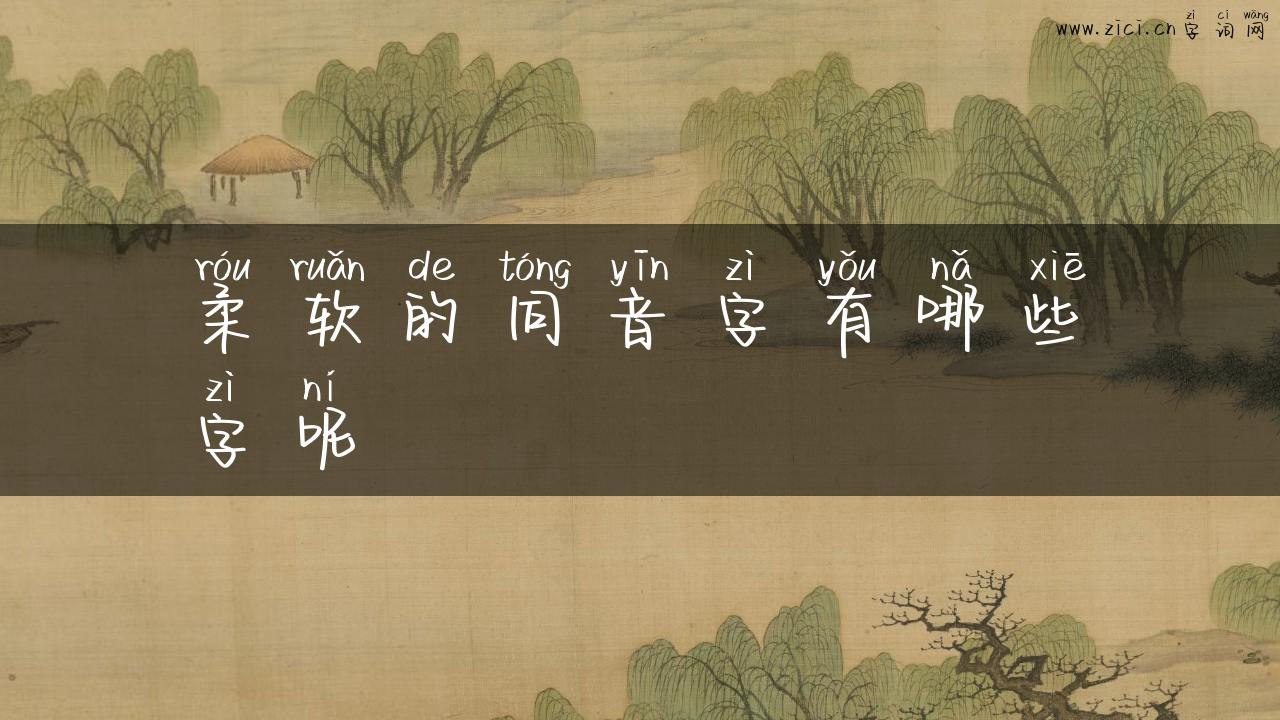 zì cí wǎng
www.zici.cn 字 词 网
róu ruǎn de tóng yīn zì yǒu nǎ xiē
柔 软 的 同 音 字 有 哪 些
zì ní
字 呢